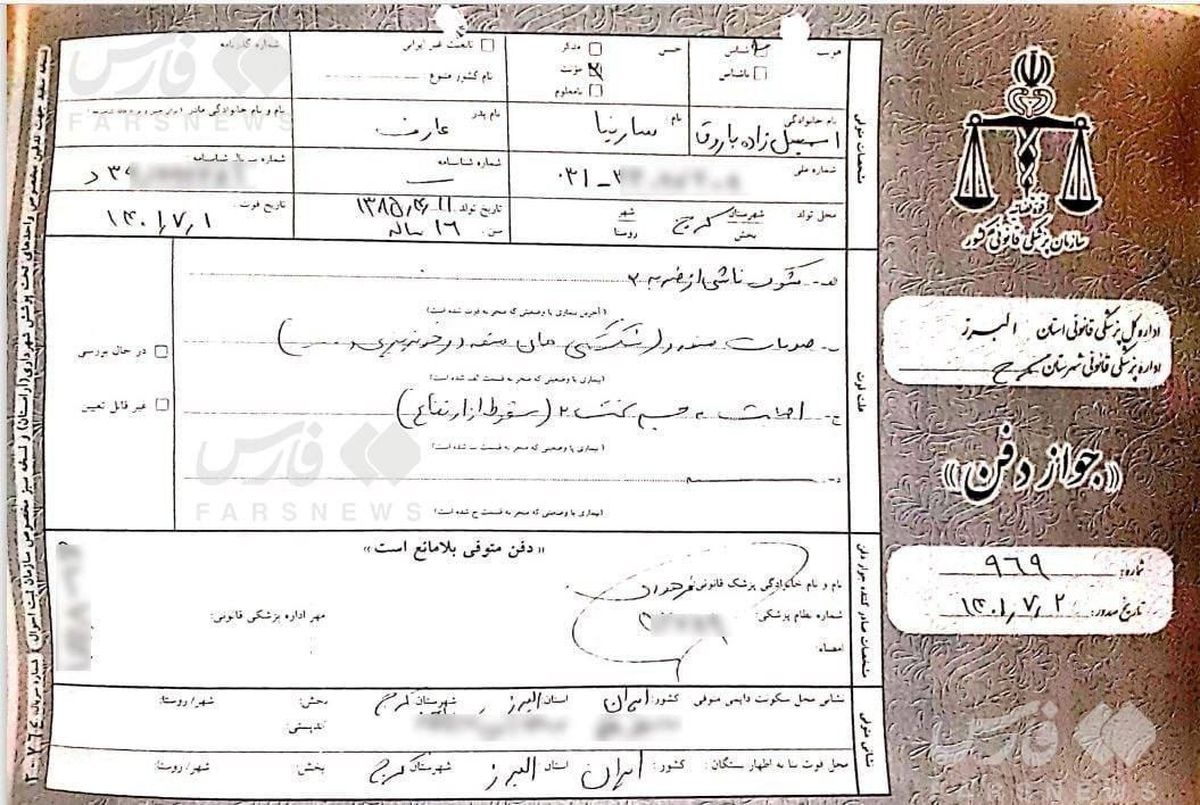 قوه قضائیه
سازمان پزشکی قانونی کشور
اداره کل پزشکی قانونی استان البرز
اداره پزشکی قانونی شهرستان کرج
«جواز دفن»
شماره: ۹۶۹
تاریخ صدور: ۱۴۰۱٫۷٫۲
مشخصات متوفی
هویت شناس ناشناس
جنس مذکر مؤنث نامعلوم
تابعیت غیر ایرانی
نام کشور متبوع:
شماره گذرنامه
نام خانوادگی اسمعیل زاده باروق
نام: سارینا
نام پدر عارف
نام و نام خانوادگی مادر
شماره ملی ۰۳۱-
شماره شناسنامه
شماره سریال شناسنامه:
محل تولد: شهرستان کرج بخش
شهر روستا
تاریخ تولد: ۱۳۸۵٫۴٫۱۱
سن: ۱۶ ساله
تاریخ فوت: ۱۴۰۱٫۷٫۱
علت فوت
الف- شکوک ناشی از ضربه
(آخرین بیماری یا وضعیتی که منجر به فوت شده است)
ب- صدمات متعدد (شکستگی های متعدد و خونریزی
(بیماری یا وضعیتی که منجر به قسمت الف شده است)
ج- اصابت به جسم سخت (سقوط از ارتفاع)
(بیماری یا وضعیتی که منجر به قسمت ب شده است)
د-
(بیماری یا وضعیتی که منجر به قسمت ج شده است)
در حال بررسی
غیر قابل تعیین
مشخصات صادر کننده جواز دفن
« دفن متوفی بلامانع است »
نام و نام خانوادگی پزشک قانونی:
شماره نظام پزشکی:
امضاء:
مهر اداره پزشکی قانونی:
نشانی متوفی
نشانی محل سکونت دایمی متوفی کشور: ایران استان: البرز شهرستان: کرج بخش: شهر/روستا:
کدپستی:
محل فوت بنا به اظهار بستگان: کشور: ایران استان: البرز شهرستان: کرج بخش: شهر/روستا:
فارس
FARSNEWS
فارس
FARSNEWS
فارس
FARSNEWS